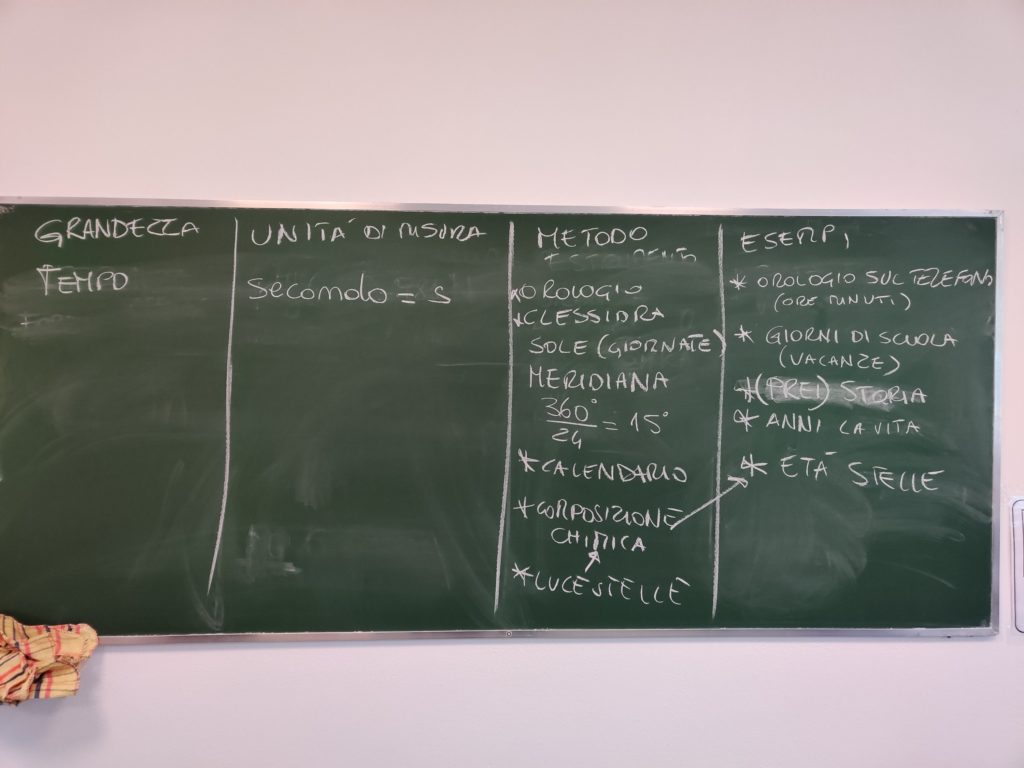 GRANDEZZA
TEMPO
UNITÁ DI MISURA
secondo = s
METODO
* OROLOGIO
* CLESSIDRA
SOLE (GIORNATE)
MERIDIANA
360°
24
= 15°
* CALENDARIO
* COMPOSIZIONE
CHIMICA
* LUCE STELLE
ESEMPI
* OROLOGIO SUL TELEFONO
(ORE MINUTI)
* GIORNI DI SCUOLA
(VACANZE)
* (PREI) STORIA
* ANNI LA VITA
* ETÁ STELLE